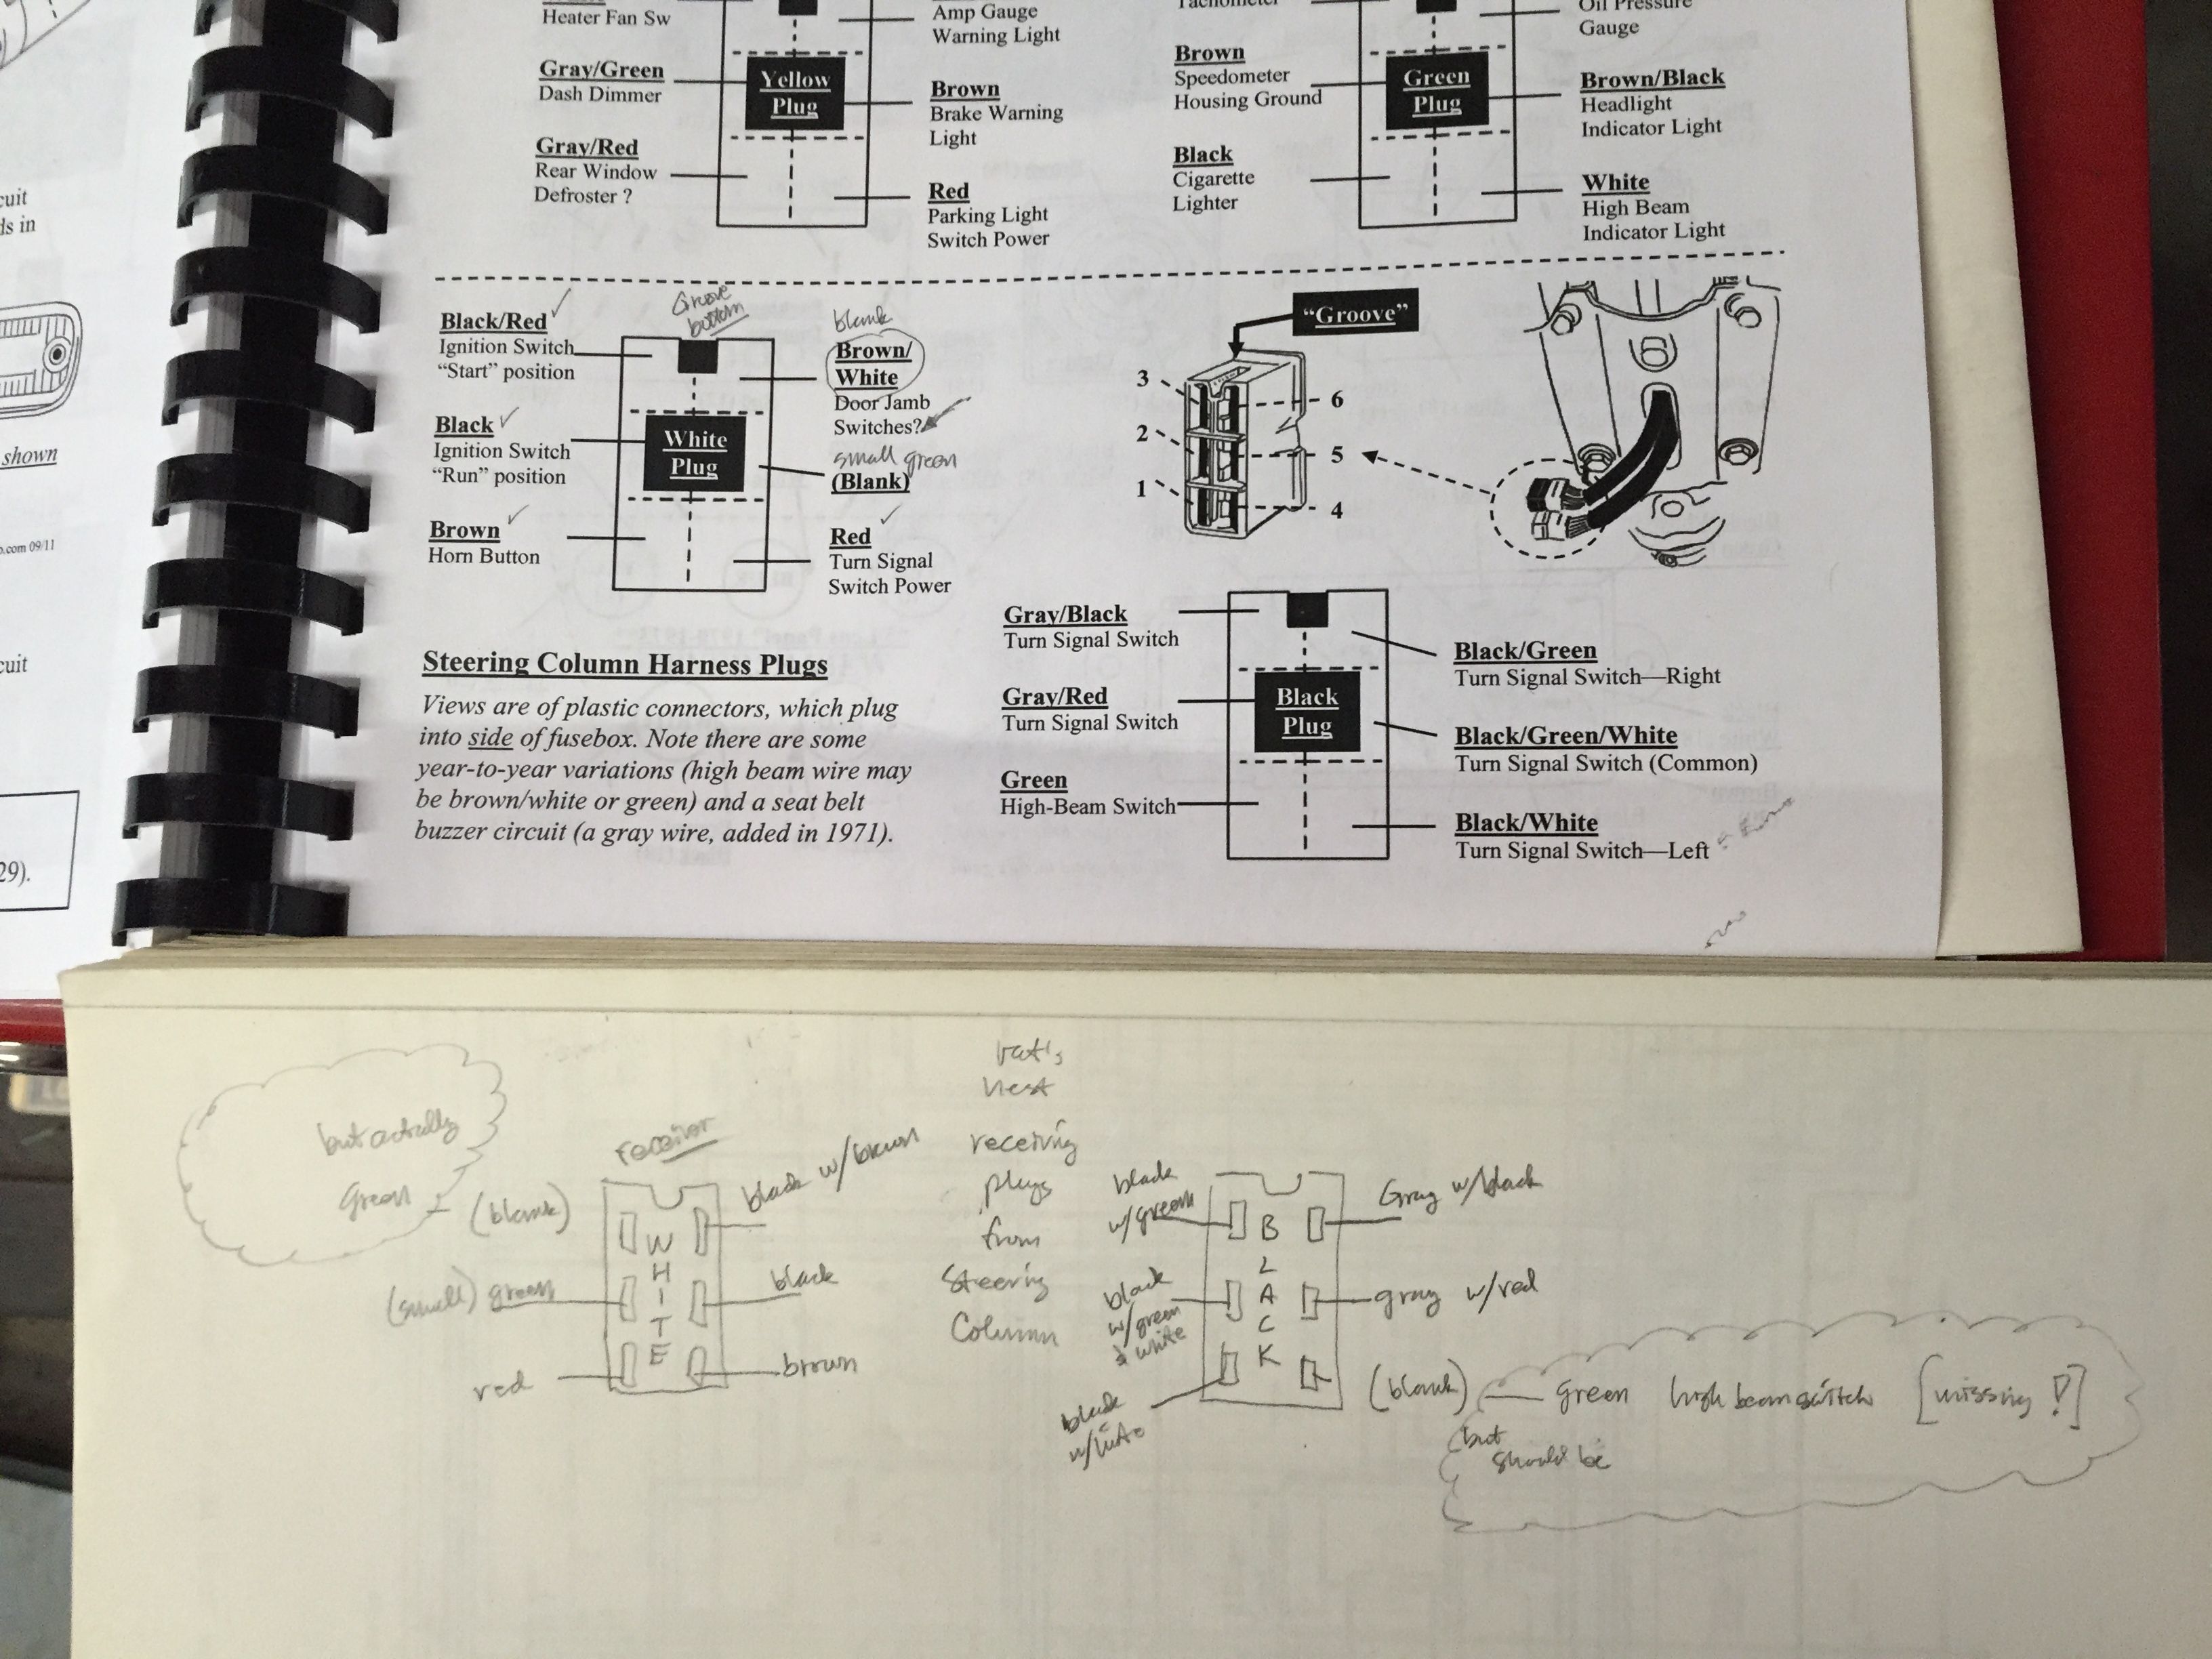 Heater Fan Sw
Gray/Green
Dash Dimmer
Gray/Red
Rear Window
Defroster ?
Yellow
Plug
Amp Gauge
Warning Light
Brown
Brake Warning
Light
Red
Parking Light
Switch Power
Brown
Speedometer
Housing Ground
Black
Cigarette
Lighter
Green
Plug
Oil Pressure
Gauge
Brown/Black
Headlight
Indicator Light
White
High Beam
Indicator Light
cuit
ds in
shown
.com 09/11
cuit
29).
Black/Red
Ignition Switch
“Start” position
Black
Ignition Switch
“Run” position
Brown
Horn Button
Groove
bottom
White
Plug
blank
Brown/
White
Door Jamb
Switches?
small green
(Blank)
Red
Turn Signal
Switch Power
“Groove”
3
2
1
6
5
4
Steering Column Harness Plugs
Views are of plastic connectors, which plug
into side of fusebox. Note there are some
year-to-year variations (high beam wire may
be brown/white or green) and a seat belt
buzzer circuit (a gray wire, added in 1971).
Gray/Black
Turn Signal Switch
Gray/Red
Turn Signal Switch
Green
High-Beam Switch
Black
Plug
Black/Green
Turn Signal Switch—Right
Black/Green/White
Turn Signal Switch (Common)
Black/White
Turn Signal Switch—Left
but actually
green
(blank)
(small) green
red
receiver
WHITE
black w/brown
black
brown
rat's
nest
receiving
plugs
from
Steering
Column
black
w/green
black
w/green
& white
black
BLACK
Gray w/black
gray w/red
(blank)
green high beam switch [missing!]
but
should be